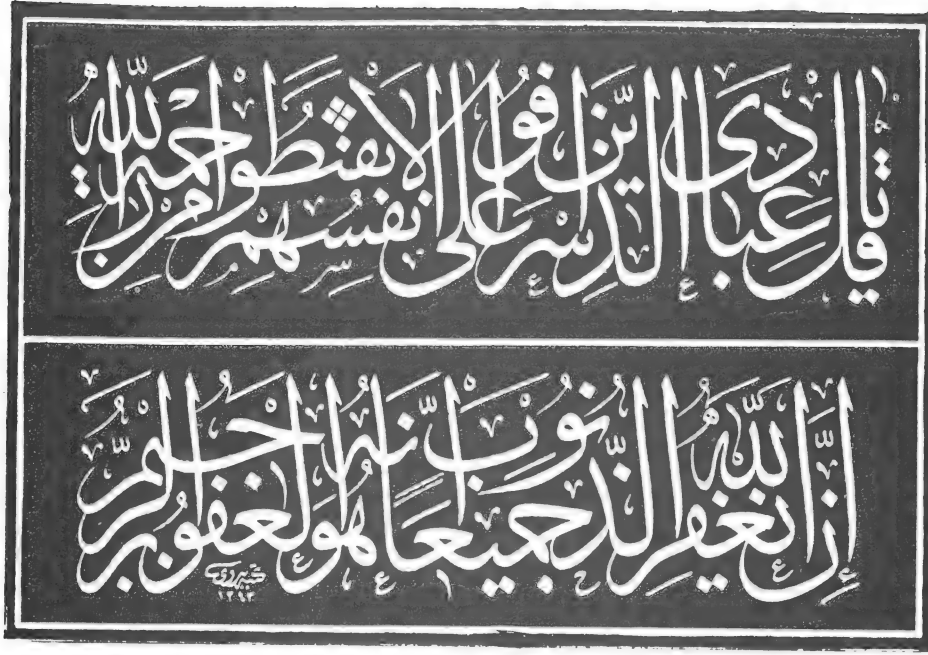 قل يا عبادى الذين اسرفوا على انفسهم لا تقنطوا من رحمة الله
ان الله يغفر الذنوب جميعا انه هو الغفور الرحيم